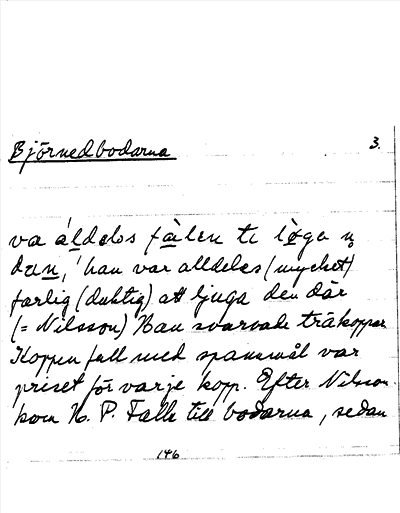 Björnedbodarna 3.
va áldelos fàlen te lǿga ŋ
dan, 'han var alldeles (mycket)
farlig (duktig) att ljuga den där
(= Nilsson) Han svarvade träkoppar
Koppen full med spannmål var
priset för varje kopp. Efter Nilsson
kom N. P. Falk till bodarna, sedan
146